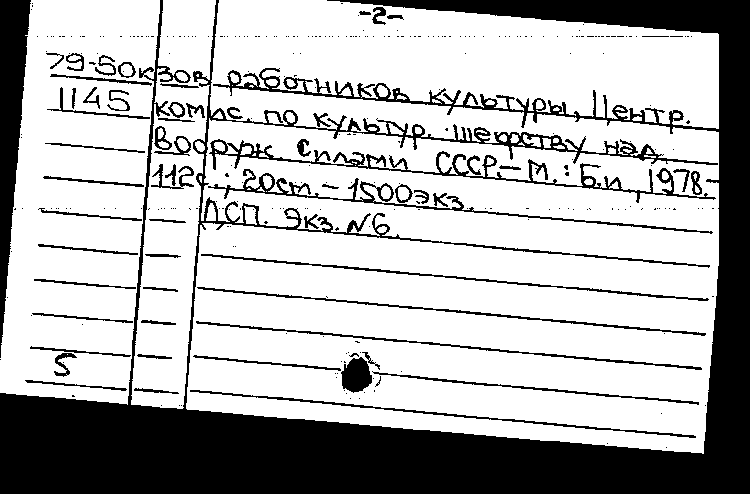 -2-
79-5окзов работников культуры, Центр.
1145 комис. по культур. шефству над
Вооруж. Силами СССР.- М.: Б.и., 1978.-
112с.; 20см.- 1500экз.
ДСП. Экз. №6.
5